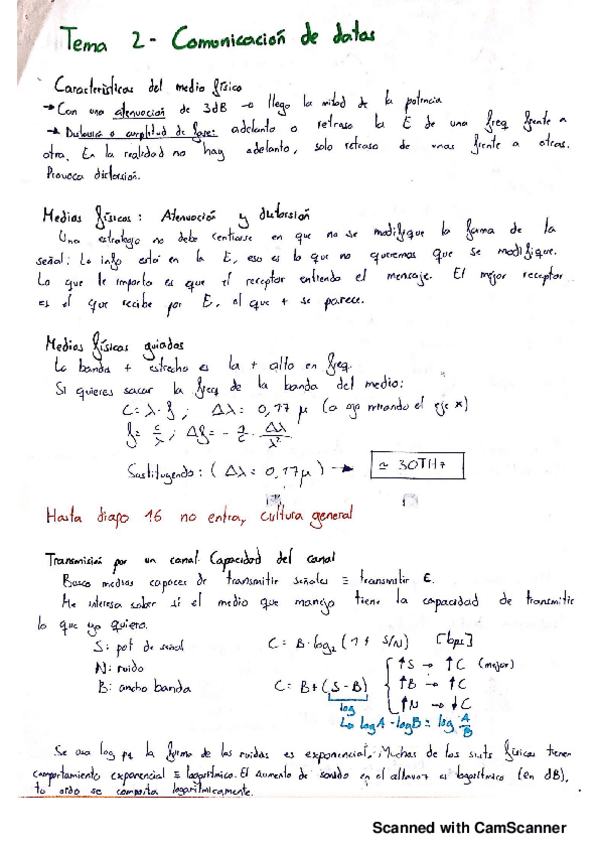 Tema 2 - Comunicación de datos
Características del medio físico
→ Con una atenuación de 3dB → llega la mitad de la potencia
→ Distorsión o amplitud de fase: adelanto o retraso la E de una freq frente a
otra. En la realidad no hay adelanto, solo retraso de unas frente a otras.
Provoca distorsión.
Medios físicos: Atenuación y distorsión
Una estrategia no debe centrarse en que no se modifique la forma de la
señal: La info está en la E, eso es lo que no queremos que se modifique.
Lo que le importa es que el receptor entienda el mensaje. El mejor receptor
es el que recibe por E, el que + se parece.
Medios físicos guiados
La banda + estrecha es la + alta en freq.
Si quieres sacar la freq de la banda del medio:
C = λ · f ; Δλ = 0,17 μ (a ojo mirando el eje x)
f = c/λ ; Δf = - · Δλ/λ²
Sustituyendo: (Δλ = 0,17μ) → ≃ 30THz
Hasta diapo 16 no entra, cultura general
Transmisión por un canal. Capacidad del canal
Busco medios capaces de transmitir señales ≡ transmitir E.
Me interesa saber si el medio que manejo tiene la capacidad de transmitir
lo que yo quiero.
S: pot de señal C = B · log₂ (1 + S/N) [bps]
N: ruido ↑S → ↑C (mejor)
B: ancho banda C = B + (S - B) ↑B → ↑C
log ↑N → ↓C
↳ logA - logB = log A/B
Se usa log pq la forma de los ruidos es exponencial, Muchos de los sists físicos tienen
comportamiento exponencial ≡ logarítmico. El aumento de sonido en el altavoz es logarítmico (en dB),
tu oído se comporta logarítmicamente.
Scanned with CamScanner